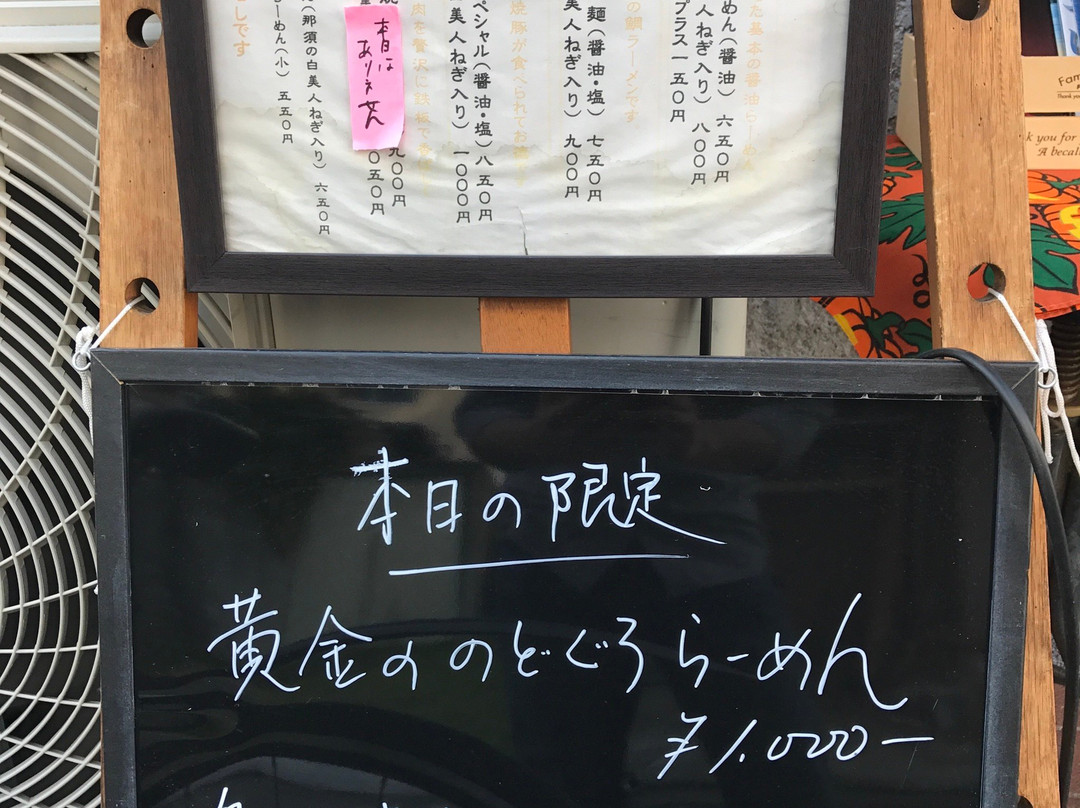 た基本の醤油らーめん
めん(醤油) 六五〇円
人ねぎ入り) 八〇〇円
プラス一五〇円
の鯛ラーメンです
麺(醤油・塩) 七五〇円
美人ねぎ入り) 九〇〇円
焼豚が食べられてお
ペシャル(醤油・塩)八五〇円
美人ねぎ入り) 一〇〇〇円
肉を贅沢に
九〇〇円
〇五〇円
本日は
ありません
(那須の白美人ねぎ入り) 六五〇円
らーめん(小) 五五〇円
しです
本日の限定
黄金ののどぐろらーめん
¥1,000-
Fam
Thank you
k you for
A becal